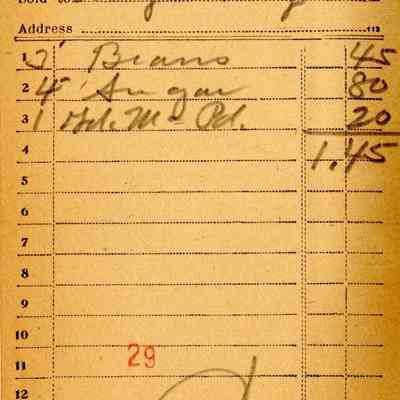 Sold to
Address
1 3 Beans 45
2 4 Sugar 80
3 1 20
4 1.45
5
6
7
8
9
10
29
11
12